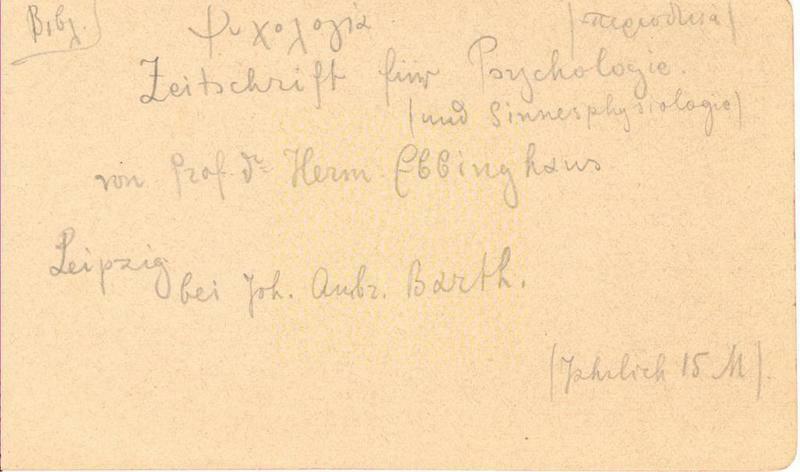 Βιβλ. Ψυχολογία (περιοδικά)
Zeitschrift für Psychologie.
(und Sinnesphysiologie)
von Prof. Dr Herm. Ebbinghaus
Leipzig bei Joh. Ambr. Barth.
(Jährlich 15 M).